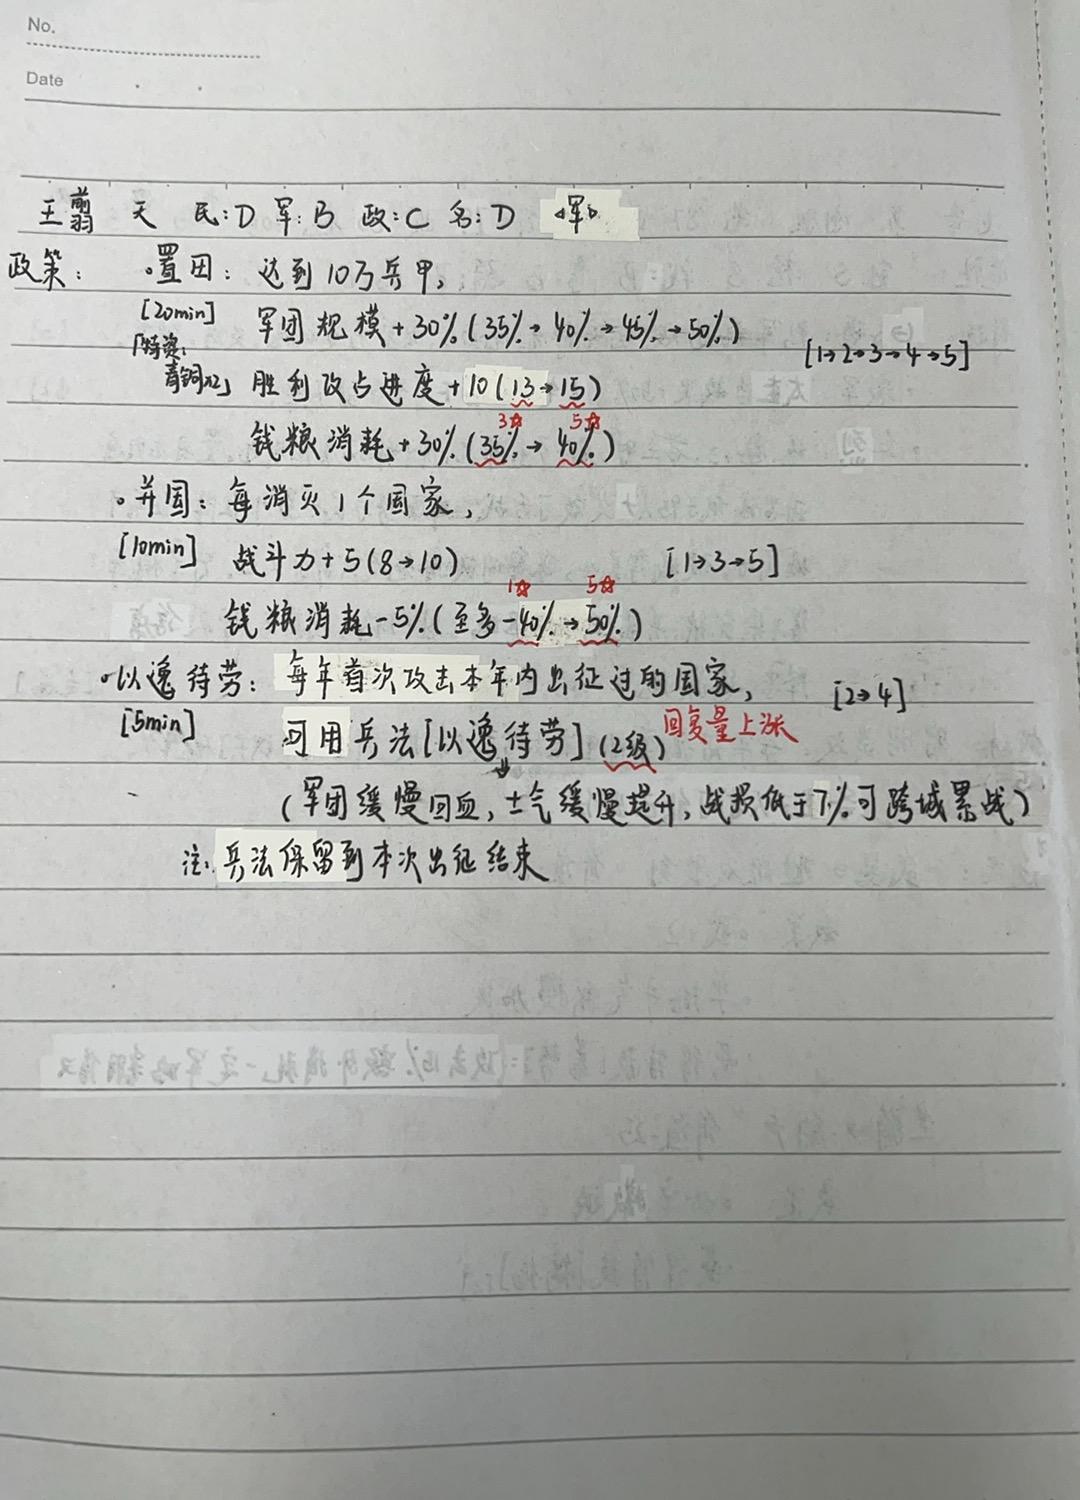 No.
Date
王翦 天 民:D 军:B 政:C 名:D 《军》
政策: 。置田: 达到10万兵甲,
[20min] 军团规模+30%(35%→40%→45%→50%)
[1→2→3→4→5]
「特资:
青铜x2」 胜利攻占进度+10(13→15)
3☆ 5☆
钱粮消耗+30%(35%→40%)
。并国: 每消灭1个国家,
[10min] 战斗力+5(8→10) [1→3→5]
1☆ 5☆
钱粮消耗-5%(至多-40%→50%)
。以逸待劳: 每年首次攻击本年内出征过的国家, [2→4]
[5min] 可用兵法[以逸待劳](2级) 回复量上涨
(军团缓慢回血,士气缓慢提升,战损低于7%可跨城累战)
注:兵法保留到本次出征结束